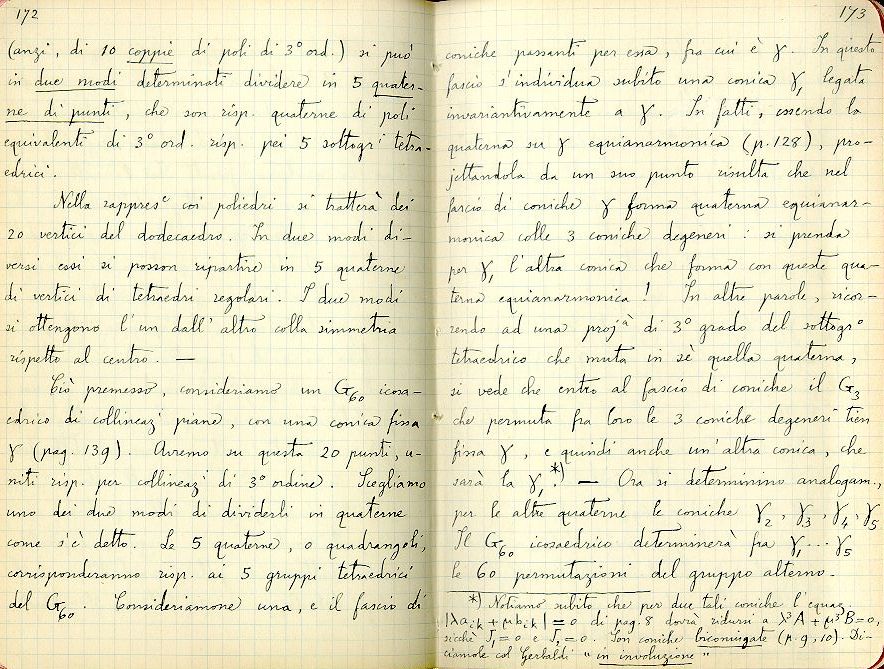 172
(anzi, di 10 coppie di poli di 3° ord.) si può
in due modi determinati dividere in 5 quater-
ne di punti, che son risp. quaterne di poli
equivalenti di 3° ord. risp. pei 5 sottogr.i tetra-
edrici.
Nella rappres.e coi poliedri si tratterà dei
20 vertici del dodecaedro. In due modi di-
versi essi si posson ripartire in 5 quaterne
di vertici di tetraedri regolari. I due modi
si ottengono l'un dall'altro colla simmetria
rispetto al centro. —
Ciò premesso, consideriamo un G₆₀ icosa-
edrico di collineaz.i piane, con una conica fissa
γ (pag. 139). Avremo su questa 20 punti, u-
niti risp. per collineaz.i di 3° ordine. Scegliamo
uno dei due modi di dividerli in quaterne
come s'è detto. Le 5 quaterne, o quadrangoli,
corrisponderanno risp. ai 5 gruppi tetraedrici
del G₆₀. Consideriamone una, e il fascio di
173
coniche passanti per essa, fra cui è γ. In questo
fascio s'individua subito una conica γ₁ legata
invariantivamente a γ. In fatti, essendo la
quaterna su γ equianarmonica (p. 128), pro-
jettandola da un suo punto risulta che nel
fascio di coniche γ forma quaterna equianar-
monica colle 3 coniche degeneri: si prenda
per γ₁ l'altra conica che forma con queste qua-
terna equianarmonica! In altre parole, ricor-
rendo ad una proj.tà di 3° grado del sottogr.o
tetraedrico che muta in sè quella quaterna,
si vede che entro al fascio di coniche il G₃
che permuta fra loro le 3 coniche degeneri tien
fissa γ, e quindi anche un'altra conica, che
sarà la γ₁.*) — Ora si determinino analogam.,
per le altre quaterne le coniche γ₂, γ₃, γ₄, γ₅
Il G₆₀ icosaedrico determinerà fra γ₁...γ₅
le 60 permutazioni del gruppo alterno.
*) Notiamo subito, che per due tali coniche l'equaz.
|λa_ik + μb_ik| = 0 di pag. 8 dovrà ridursi a λ³A + μ³B = 0,
sicchè J₁ = 0 e J₂ = 0. Son coniche biconiugate (p. 9, 10). Di-
ciamole col Gerbaldi "in involuzione"